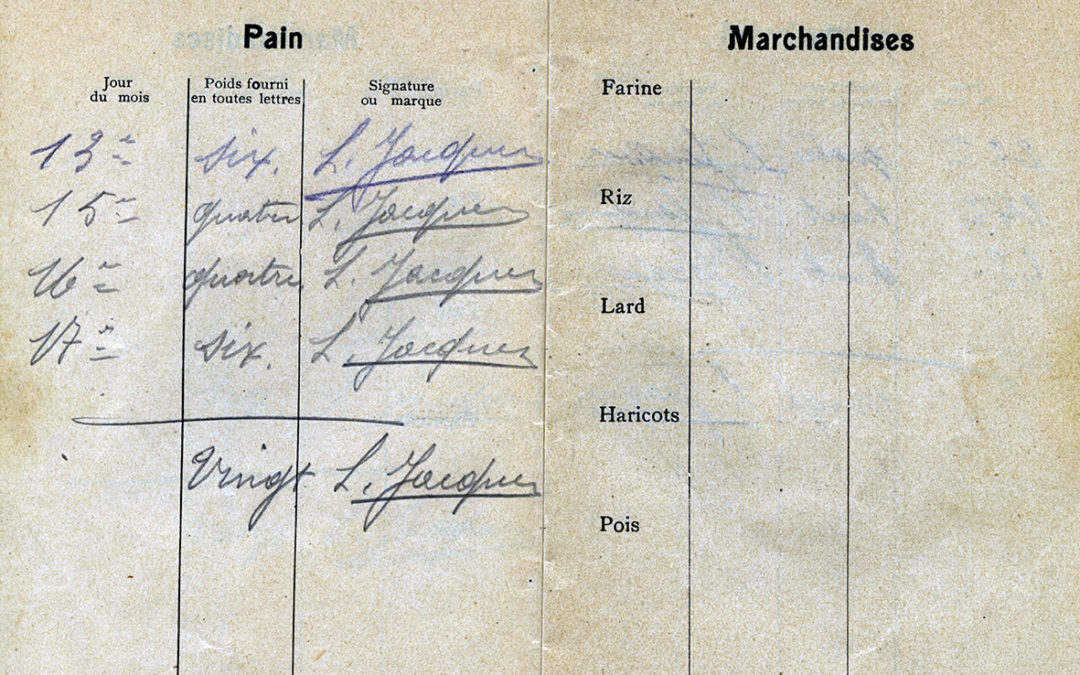 Pain
Jour du mois
Poids fourni en toutes lettres
Signature ou marque
13e six. L. Jacques
15e quatre L. Jacques
16e quatre L. Jacques
17e six. L. Jacques
Vingt L. Jacques
Marchandises
Farine
Riz
Lard
Haricots
Pois